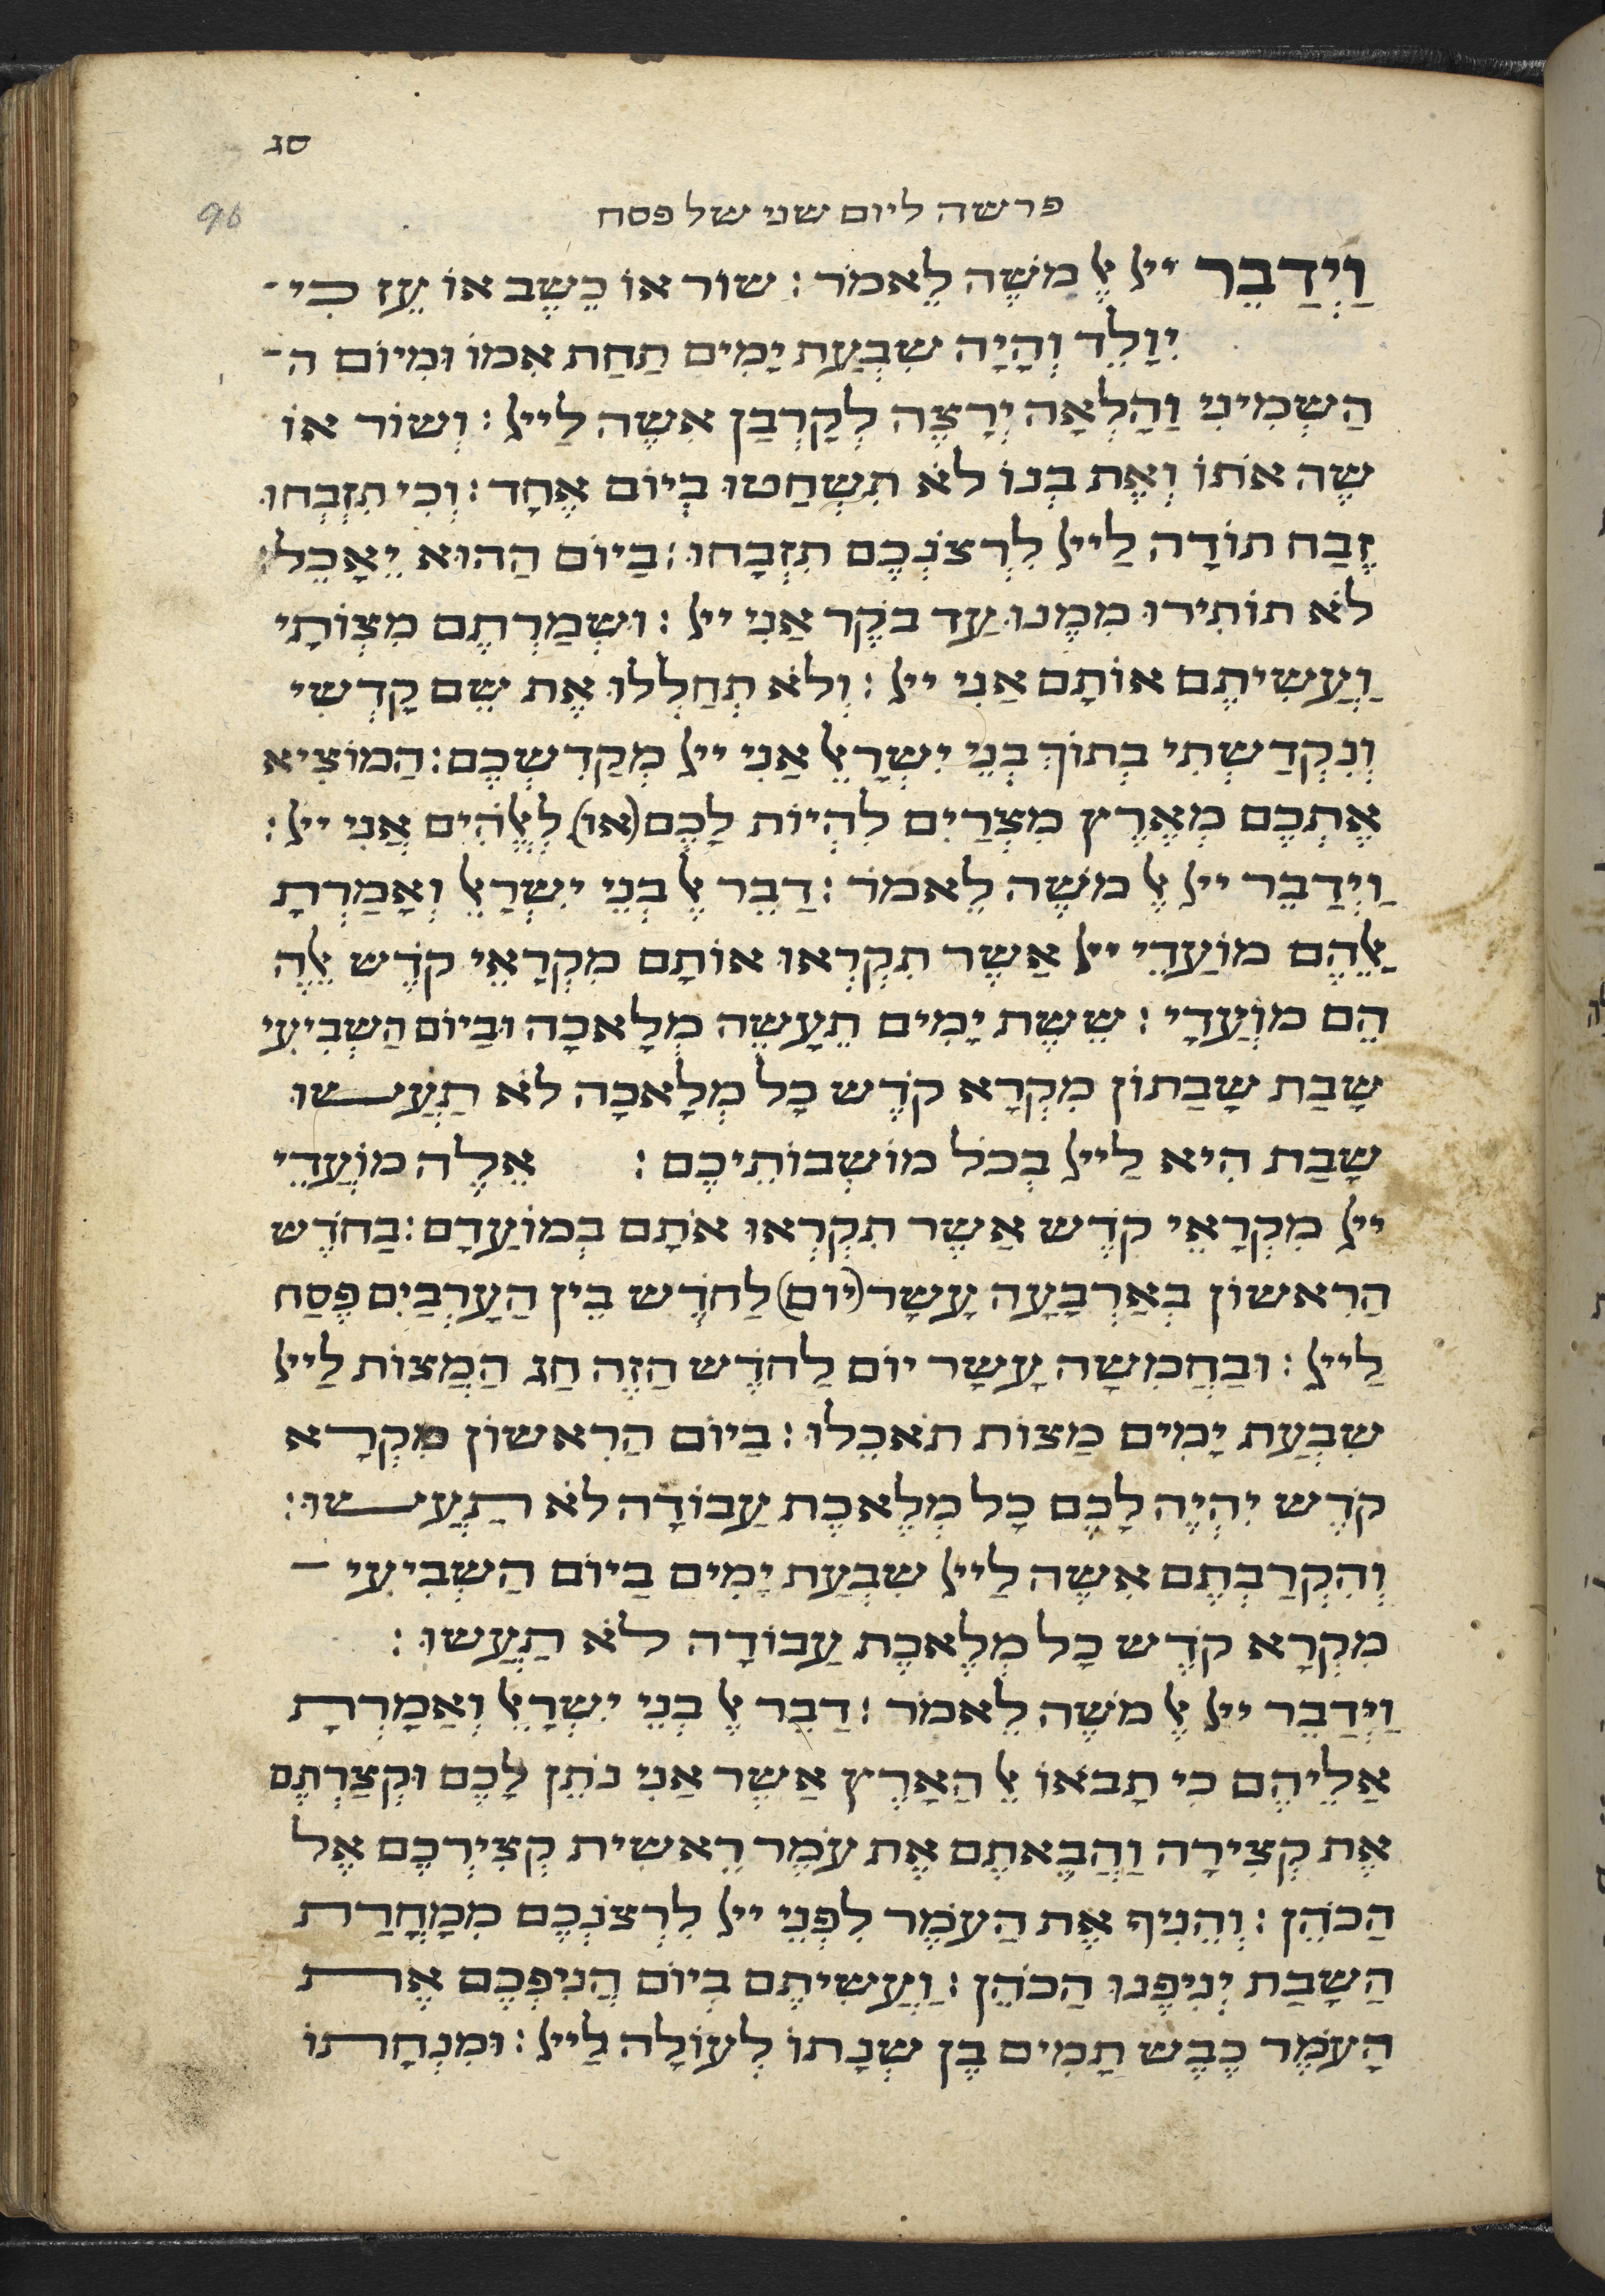 סג
96
פרשה ליום שני של פסח
וַיְדַבֵּר ייל אֶל משֶׁה לֵאמֹר: שור או כֶשֶב אוֹ עֵז כִי
יִוָלֵד וְהָיָה שִבְעַת יָמִים תַחַת אִמוֹ וּמִיוֹם ה
הַשְמִינִי וַהָלְאָה יְרָצֶה לְקָרְבַן אִשֶה לַייל: וְשוֹר אוֹ
שֶה אֹתוֹ וְאֶת בְנוֹ לֹא תִשְחַטוּ בְיוֹם אֶחָד: וְכִי תִזְבְחוּ
זֶבַח תוֹדָה לַייל לִרְצֹנְכֶם תִזְבָחוּ: בַיוֹם הַהוּא יֵאָכֵל:
לֹא תוֹתִירוּ מִמֶנוּ עַד בֹקֶר אַנִי ייל: וּשְמַרְתֶם מִצְוֹתָי
וַעֲשִיתֶם אוֹתָם אַנִי ייל: וְלֹא תְחַלְלוּ אֶת שֵם קָדְשִי
וְנִקְדַשְתִי בְתוֹךְ בְנֵי יִשְרָאֵל אַנִי ייל מְקַדִשְכֶם: הַמוֹצִיא
אֶתְכֶם מְאֶרֶץ מִצְרַיִם לִהְיוֹת לָכֶם (או) לֶאֱלֹהִים אֲנִי ייל:
וַיְדַבֵר ייל אֶל משֶה לֵאמֹר: דַבֵר אֶל בְנֵי יִשְרָאֵל וְאָמַרְתָ
אֲלֵהֶם מוֹעַדֵי ייל אַשֶר תִקְרְאוּ אוֹתָם מִקְרָאֵי קֹדֶש אֵלֶה
הֵם מוֹעֲדָי: שֵשֶת יָמִים תֵעָשֶה מְלָאכָה וּבַיוֹם הַשְבִיעִי
שָבַת שָבַתוֹן מִקְרָא קֹדֶש כָל מְלָאכָה לֹא תַעֲשוּ
שָבַת הִיא לַייל בְכֹל מוֹשְבוֹתֵיכֶם: אֵלֶה מוֹעֲדֵי
ייל מִקְרָאֵי קֹדֶש אַשֶר תִקְרְאוּ אֹתָם בְמוֹעַדָם: בַחֹדֶש
הַרִאשוֹן בְאַרְבָעָה עָשָר (יום) לַחֹדֶש בֵין הַעָרְבַיִם פֶסַח
לַייל: וּבַחֲמִשָה עָשָר יוֹם לַחֹדֶש הַזֶה חַג הַמַצוֹת לַייל
שִבְעַת יָמִים מַצוֹת תֹאכֵלוּ: בַיוֹם הַרִאשוֹן מִקְרָא
קֹדֶש יִהְיֶה לָכֶם כָל מְלֶאכֶת עַבוֹדָה לֹא תַעֲשוּ:
וְהִקְרַבְתֶם אִשֶה לַייל שִבְעַת יָמִים בַיוֹם הַשְבִיעִי
מִקְרָא קֹדֶש כָל מְלֶאכֶת עַבוֹדָה לֹא תַעֲשוּ:
וַיְדַבֵר ייל אֶל משֶה לֵאמֹר: דַבֵר אֶל בְנֵי יִשְרָאֵל וְאַמָרְתָ
אַלֵיהֶם כִי תָבֹאוּ אֶל הַאָרֶץ אַשֶר אַנִי נֹתֵן לָכֶם וּקְצַרְתֶם
אֶת קְצִירָה וַהֲבֵאתֶם אֶת עֹמֶר רֵאשִית קְצִירְכֶם אֶל
הַכֹהֵן: וְהֵנִיף אֶת הַעֹמֶר לִפְנֵי ייל לִרְצֹנְכֶם מִמָחֳרַת
הַשָבַת יְנִיפֶנוּ הַכֹהֵן: וַעֲשִיתֶם בְיוֹם הֲנִיפְכֶם אֶת
הָעֹמֶר כֶבֶש תַמִים בֶן שְנָתוֹ לְעוֹלָה לַייל: וּמִנְחָתוֹ